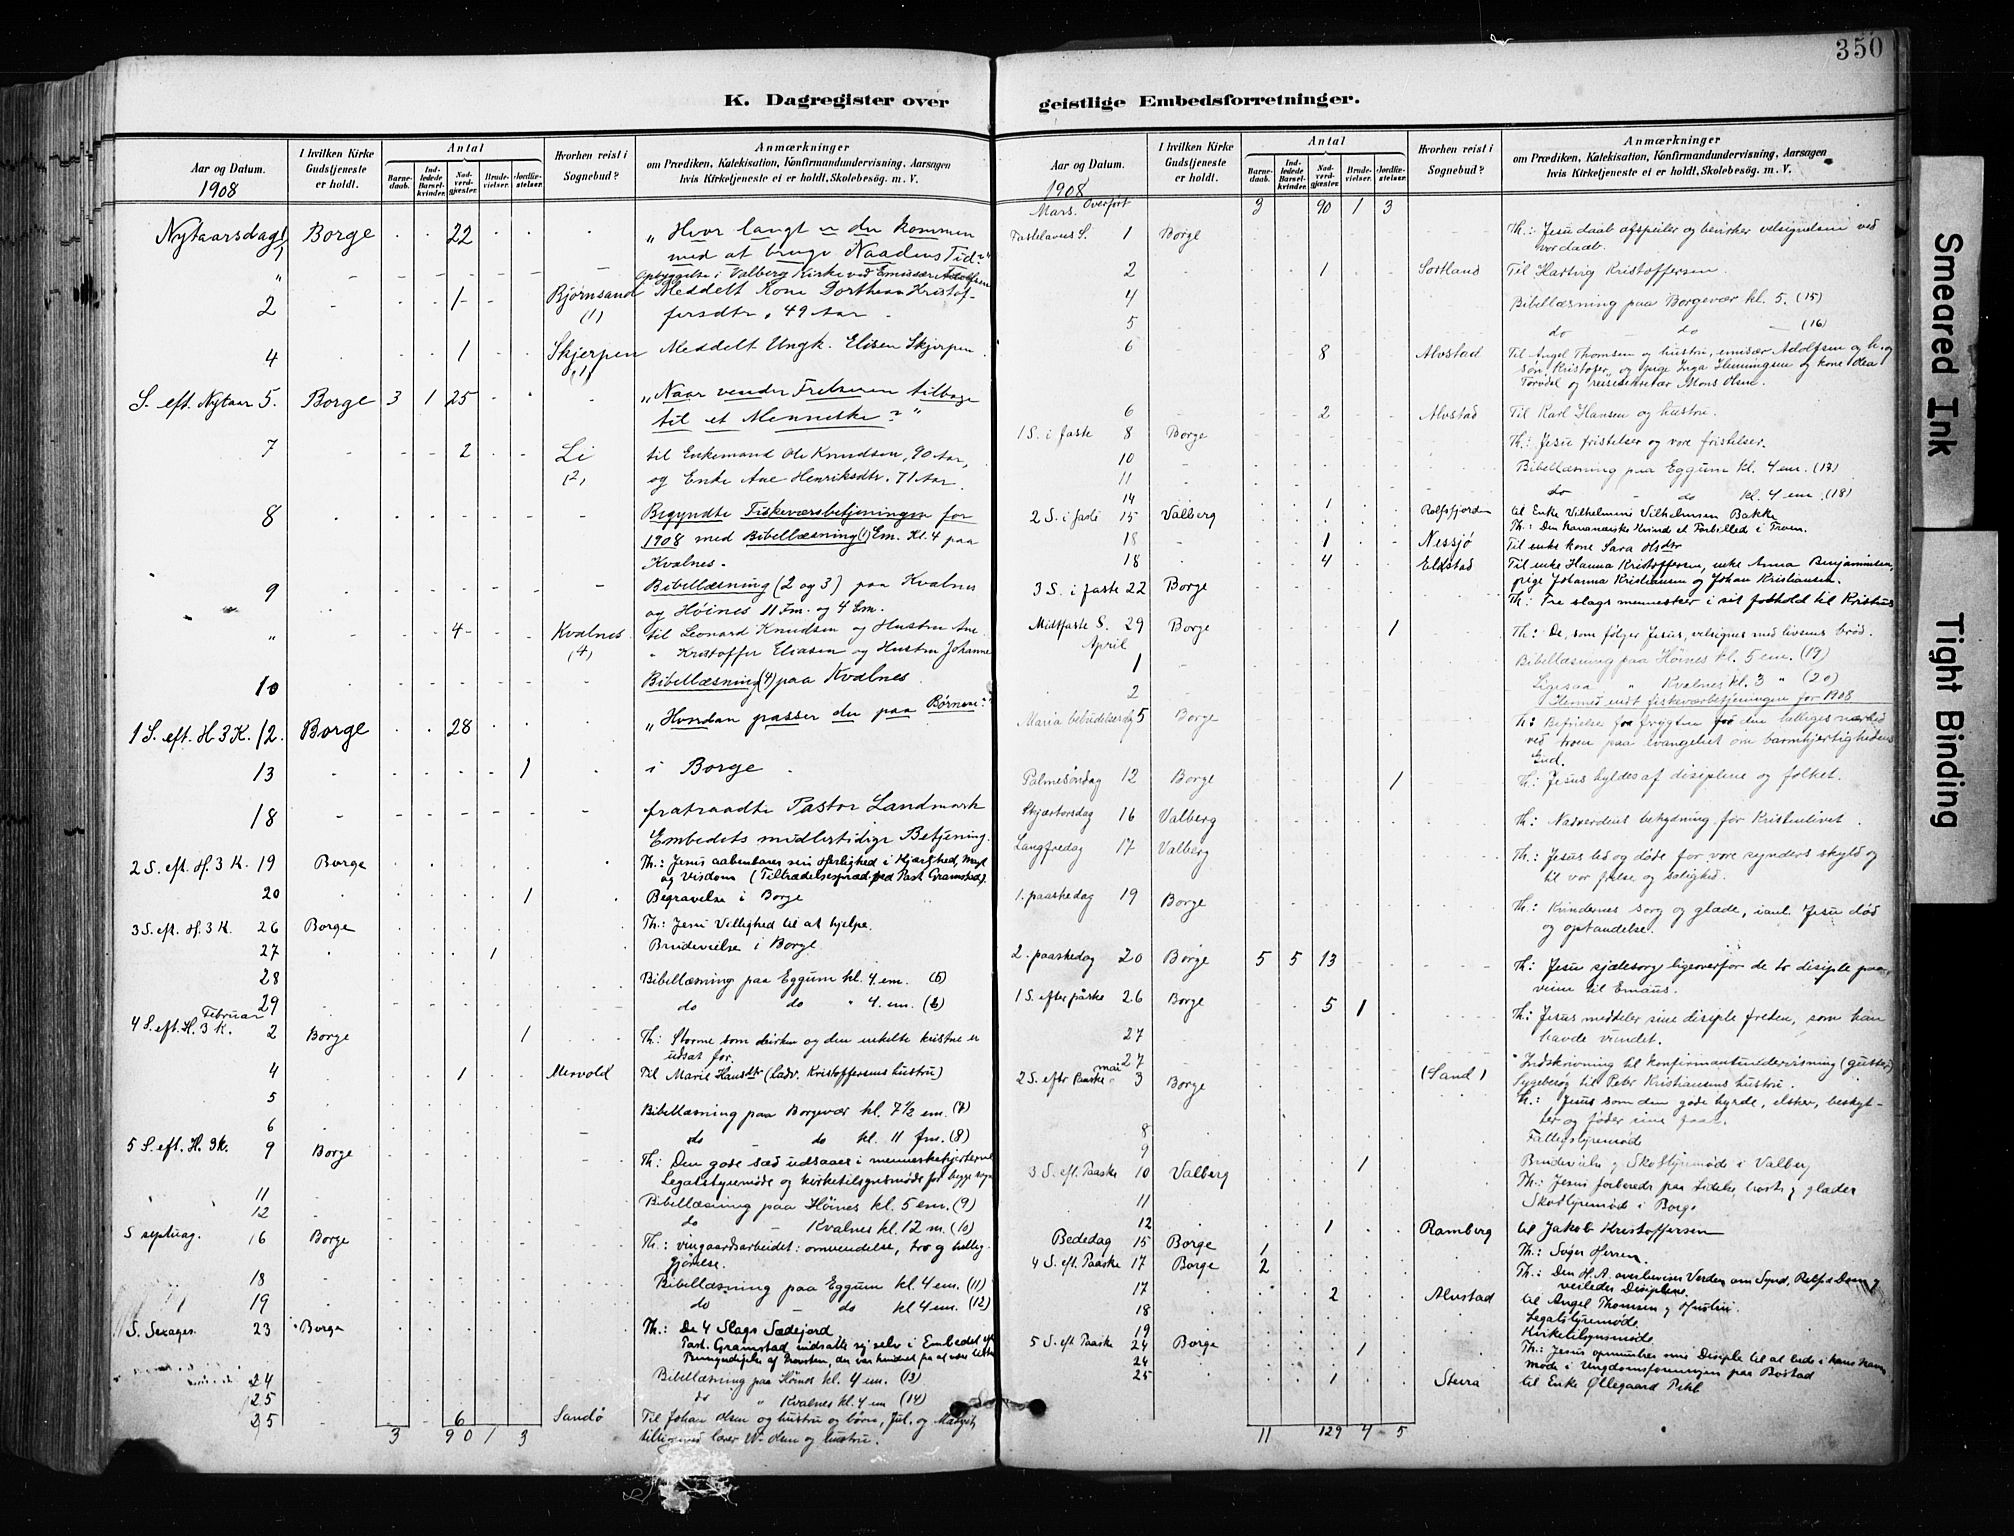 350
K. Dagregister over geistlige Embedsforretninger.
Aar og Datum. I hvilken Kirke Gudstjeneste er holdt. Antal Barnedaab. Indledede Barselkvinder. Nadverdgjester. Brudevielser. Jordfæstelser. Hvorhen reist i Sognebud? Anmærkninger om Prædiken, Katekisation, Konfirmandundervisning, Aarsagen hvis Kirketjeneste ei er holdt, Skolebesøg. m. V.
1908
Nytaarsdag 1/1 Borge 22 „Hvor langt er du kommen
med at bruge Naadens Tid?"
" Opbyggelse i Valberg Kirke ved Emissær Adolfsen
2 1 Bjørnsand (1) Meddelt Kone Dorthea Kristof-
fersdtr, 49 Aar
4 1 Skjerpen (1) Meddelt Ungk. Elisen Skjerpen
S. eft. Nytaar 5. Borge 3 1 25 „Naar vender Frelseren tilbage
til et Menneske?"
7 2 Li (2) til Enkemand Ole Knudsen, 90 Aar,
og Enke Ane Henriksdtr. 71 Aar.
8 Begyndte Fiskeværsbetjeningen for
1908 med Bibellæsning (1) Em. Kl. 4 paa
Kvalnes.
9 Bibellæsning (2 og 3) paa Kvalnes
og Høines 11 Fm. og 4 Em.
" 4 Kvalnes (4) til Leonard Knudsen og Hustru Ane
" Kristoffer Eliasen og Hustru Johanne
10 Bibellæsning (4) paa Kvalnes
1 S. eft. H. 3 K. 12. Borge 28 „Hvordan passer du paa Børnene?"
13 1 i Borge
18 fratraadte Pastor Landmark
Embedets midlertidige Betjening.
2 S. eft. H. 3 K. 19 Borge Th.: Jesus aabenbarer sin Herlighed i Kjærlighed, Magt
og Visdom (Tiltrædelsespræd. ved Past. Gramstad).
20 1 Begravelse i Borge
3 S. eft. H. 3 K. 26 Borge Th.: Jesu Villighed til at hjelpe.
27 1 Brudevielse i Borge
28 Bibellæsning paa Eggum kl. 4 em. (5)
29 do do " 4. em. (6)
Februar
4 S. eft. H. 3 K. 2 Borge 1 Th.: Storme som kirken og den enkelte kristne er
udsat for.
4 1 Mervold Til Marie Hansdtr (Ladv. Kristoffersens hustru)
5 Bibellæsning paa Borgevær kl. 7½ em. (7)
6 do do kl. 11 fm. (8)
5 S. eft. H. 3 K. 9 Borge Th.: Den gode sæd udsaaes i menneskehjerterne
Legatstyremøde og kirketilsynsmøde for begge sogn
11 Bibellæsning paa Höines kl. 5 em. (9)
12 do Kvalnes kl. 12 m. (10)
S septuag. 16 Borge Th.: vingaardsarbeidet: omvendelse, tro og hellig-
gjørelse.
18 Bibellæsning paa Eggum kl. 4 em. (11)
19 do do kl 4 em. (12)
S. Sexages. 23 Borge Th.: De 4 Slags Sædejord
Past. Gramstad indsatte sig selv i Embedet eft.
24 Bibellæsning paa Höines kl. 4 em. (13)
25 do " Kvalnes kl. 4 em (14)
25 6 Sandø Til Johan Olsen og hustru og börn, Jul. og
tilligemed lærer W. Olsen og hustru.
3 90 1 3
Aar og Datum. I hvilken Kirke Gudstjeneste er holdt. Antal Barnedaab. Indledede Barselkvinder. Nadverdgjester. Brudevielser. Jordfæstelser. Hvorhen reist i Sognebud? Anmærkninger om Prædiken, Katekisation, Konfirmandundervisning, Aarsagen hvis Kirketjeneste ei er holdt, Skolebesøg. m. V.
1908
Mars. Overført 3 90 1 3
Fastelavns S. 1 Borge Th.: Jesu daab afspeiler og bevirker velsignelsen ved
vor daab.
2 1 Sortland Til Hartvig Kristoffersen.
4 Bibellæsning paa Borgevær kl. 5. (15)
5 do do (16)
6 8 Alvstad Til Angel Thomsen og hustru, emisær Adolfsen og h. og
sön Kristofer, og pige Inga Henningsen og kone Olea
Torvdal og reisesekretær Mons Olsen.
6 2 Alvstad Til Karl Hansen og hustru.
1 S. i faste 8 Borge Th.: Jesu fristelser og vore fristelser.
10 Bibellæsning paa Eggum kl. 4 em. (17)
11 do do kl. 4 em. (18)
14 1 Rolfsfjorden til Enke Vilhelmine Vilhelmsen Bakke
2 S. i faste 15 Valberg Th.: Den kananæiske Kvinde et Forbilled i Troen.
18 1 Nessjø Til enke kone Sara Olsdtr
18 4 Elvstad Til enke Hanna Kristoffersen, enke Anna Benjaminsen,
pige Johanna Kristiansen og Johan Kristiansen.
3 S. i faste 22 Borge Th.: Tre slags mennesker i sit forhold til Kristus
Midtfaste S. 29 Borge 1 Th.: De, som følger Jesus, velsignes med livsens bröd.
April
1 Bibellæsning paa Höines kl. 5 em. (19)
2 Ligesaa " Kvalnes kl. 3 " (20)
Hermed endt fiskeværbetjeningen for 1908
Maria bebudelsesdag 5 Borge Th: Befrielse fra frygten for den helliges nærhed
ved troen paa evangeliet om barmhjertighedens
Gud.
Palmesöndag 12 Borge 1 Th: Jesus hyldes af disiplene og folket.
Skjærtorsdag 16 Valberg Th.: Nadverdens betydning for Kristenlivet.
Langfredag 17 Valberg Th.: Jesus led og døde for vore synders skyld og
til vor frelse og salighed.
1. paaskedag 19 Borge Th.: Kvindernes sorg og glæde, i anl. Jesu död
og opstandelse.
2. paaskedag 20 Borge 5 5 13 Th: Jesu sjælesorg ligeoverfor de to disiple paa
veien til Emaus.
1 S. efter påske 26 Borge 5 1 Th: Jesus meddeler sine disiple freden, som han
havde vundet.
27 Indskrivning til konfirmantundervisning (gutter)
27 (Sand) Sygebesøg til Peter Kristiansens hustru.
mai
2 S. efter Paaske 3 Borge Th.: Jesus som den gode hyrde, elsker, beskyt-
ter og føder sine faar.
8 Fattigstyremøde
9 1 Brudevielse og Skolstyremøde i Valberg
3 S. eft. Paaske 10 Valberg Th.: Jesus forbereder paa lidelse, trøst og glæder
11 Skolstyremøde i Borge
12 1 Ramberg til Jakob Kristoffersen
Bededag 15 Borge 1 Th.: Søger Herren
4 S. eft. Paaske 17 Borge 2 Th.: Den H. A. overbeviser Verden om Synd, Retf. & Dom og
veileder Disiplene.
17 2 Alvstad til Angel Thomsen og Hustru.
18 Legatstyremøde
19 Kirketilsynsmøde
5 S. eft Paaske 24 Borge 1 Th.: Jesus opmuntrer sine Disiple til at bede i hans Navn
24 møde i Ungdomsforeningen paa Bøstad
25 1 Steira til Enke Øllegaard Pehl
11 129 4 5
Smeared Ink
Tight Binding